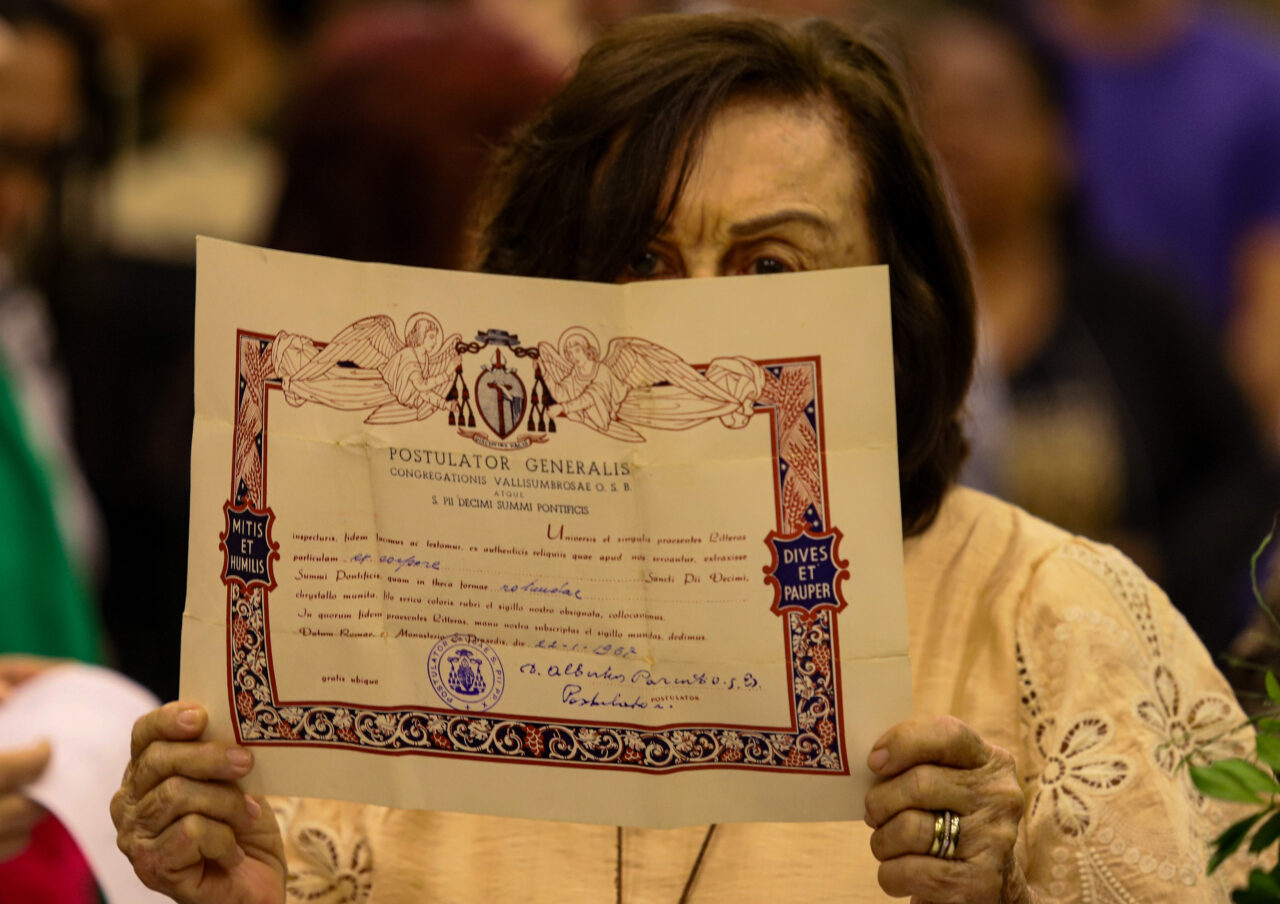 POSTULATOR GENERALIS
CONGREGATIONIS VALLISUMBROSAE O. S. B.
ATQUE
S. PII DECIMI SUMMI PONTIFICIS
MITIS
ET
HUMILIS
DIVES
ET
PAUPER
Universis et singulis praesentes litteras
inspecturis, fidem facimus ac testamur, ex authenticis reliquiis quae apud nos servantur, extraxisse
particulam ex corpore Sancti Pii Decimi,
Summi Pontificis, quam in theca formae rotundae
chrystallo munita, filo serico coloris rubri et sigillo nostro obsignata, collocavimus.
In quorum fidem praesentes litteras, manu nostra subscriptas et sigillo munitas, dedimus.
Datum Romae, e Monasterio S. Praxedis, die 22-1-1967
gratis ubique
POSTULATOR CAUSAE S. PII PP. X
D. Albertus Parenti O.S.B.
POSTULATOR